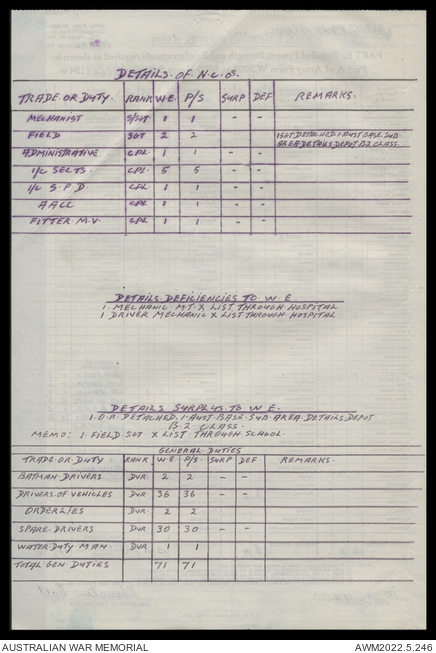 DETAILS. OF N.C.Os.
TRADE. OR. DUTY. RANK W.E. P/S SURP DEF REMARKS.
MECHANIST S/SGT 1 1 - -
FIELD SGT 2 2 1 SGT DETACHED. 1 AUST BASE SUB. AREA DETAILS DEPOT B2 CLASS.
ADMINISTRATIVE CPL 1 1 - -
I/C SECTS. CPL. 5 5 - -
I/C S.P.D. CPL 1 1 - -
AALC CPL 1 1 - -
FITTER M.V. CPL 1 1 - -
DETAILS DEFICIENCIES TO W.E
1. MECHANIC. M.T. X LIST THROUGH HOSPITAL
1 DRIVER MECHANIC X LIST THROUGH HOSPITAL
DETAILS SURPLUS TO W.E.
1. O.R. DETACHED. 1. AUST. BASE. SUB. AREA. DETAILS DEPOT
B.2 CLASS.
MEMO: 1. FIELD. SGT. X LIST THROUGH SCHOOL.
GENERAL DUTIES
TRADE. OR. DUTY RANK W.E. P/S SURP DEF. REMARKS.
BATMAN DRIVERS DVR 2 2 - -
DRIVERS. OF VEHICLES DVR 36 36 - -
ORDERLIES DVR 2 2
SPARE. DRIVERS DVR 30 30 - -
WATER DUTY MAN. DVR 1 1
TOTAL GEN. DUTIES 71 71
AUSTRALIAN WAR MEMORIAL AWM2022.5.246